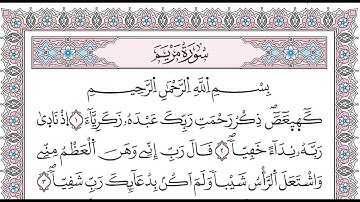 سُورَةُ مَرْيَمَ
بِسْمِ اللَّهِ الرَّحْمَٰنِ الرَّحِيمِ
كَهيعَصَ ذِكْرُ رَحْمَتِ رَبِّكَ عَبْدَهُ زَكَرِيَّاءَ ١ إِذْ نَادَىٰ
رَبَّهُ نِدَاءً خَفِيًّا ٢ قَالَ رَبِّ إِنِّي وَهَنَ الْعَظْمُ مِنِّي
وَاشْتَعَلَ الرَّأْسُ شَيْبًا وَلَمْ أَكُنۢ بِدُعَائِكَ رَبِّ شَقِيًّا ٣